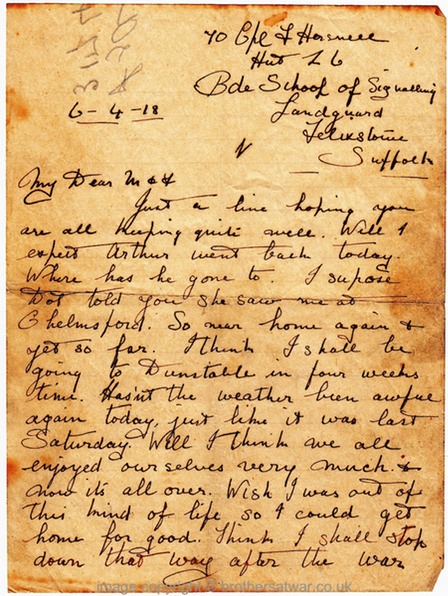 70 Cpl F Horsnell
Hut L 6
Bde School of Signalling
Landguard
Felixstowe
Suffolk
6-4-18
My Dear M & F
Just a line hoping you
are all keeping quite well. Well I
expect Arthur went back today.
Where has he gone to. I supose
Dot told you she saw me at
Chelmsford. So near home again &
yet so far. I think I shall be
going to Dunstable in four weeks
time. Hasn't the weather been awful
again today, just like it was last
Saturday. Well I think we all
enjoyed ourselves very much &
now its all over. Wish I was out of
this kind of life, so I could get
home for good. Think I shall stop
down that way after the war
image copyright brothersatwar.co.uk